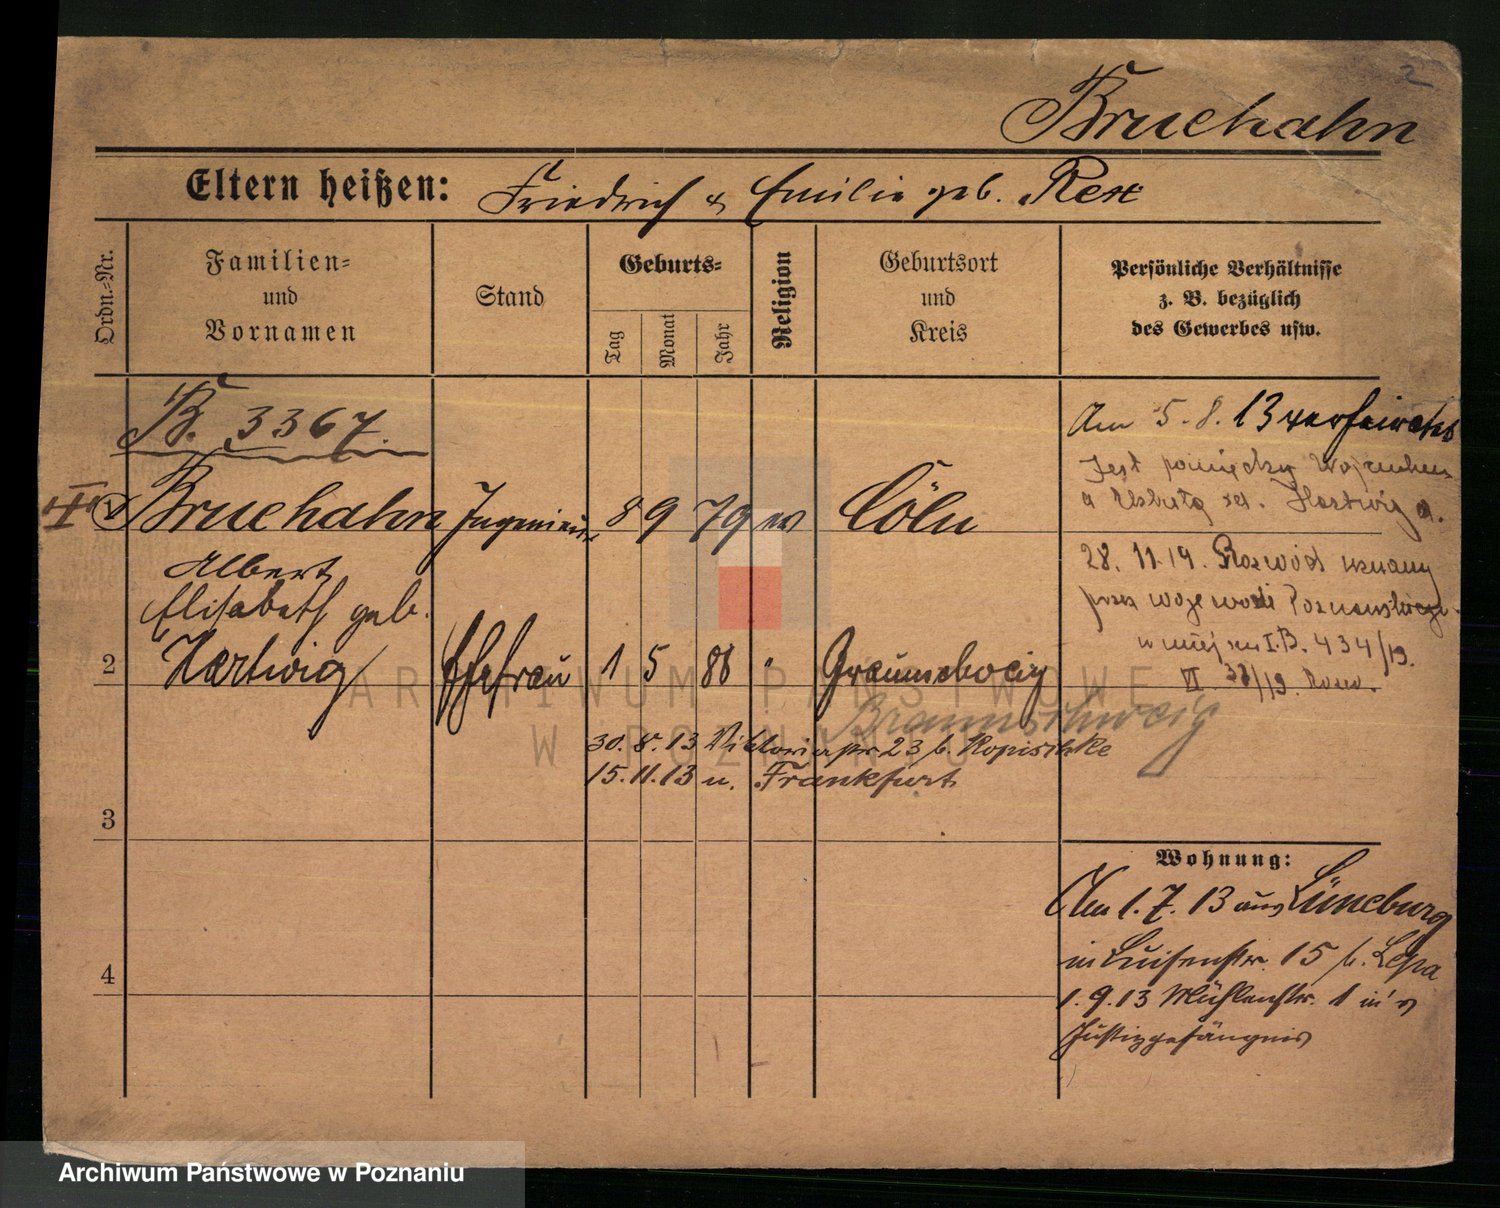 2
Bruchahn
Eltern heißen: Friedrich & Emilie geb. Rex
Ordn.=Nr.
Familien=
und
Vornamen
Stand
Geburts=
Tag
Monat
Jahr
Religion
Geburtsort
und
Kreis
Persönliche Verhältnisse
z. B. bezüglich
des Gewerbes usw.
B. 3367.
1 Bruchahn Ingenieur 8 9 79 ev Cöln
Albert
Elisabeth geb.
2 Hartwig Ehefrau 1 5 88 " Braunschweig
Braunschweig
30. 8. 13 Viktoriastr 23 b. Kopischke
15. 11. 13 n. Frankfurt
3
4
Am 5. 8. 13 verheiratet
Jest pomiędzy
a Hartwig
28. 11. 19. Rozwód uznany
przez
I.B. 434/19.
VI
Wohnung:
Am 1. 7. 13 aus Lüneburg
in Luisenstr. 15 b. Lepa
1. 9. 13 Mühlenstr. 1 in's
Justizgefängnis
ARCHIWUM PAŃSTWOWE
W POZNANIU
Archiwum Państwowe w Poznaniu